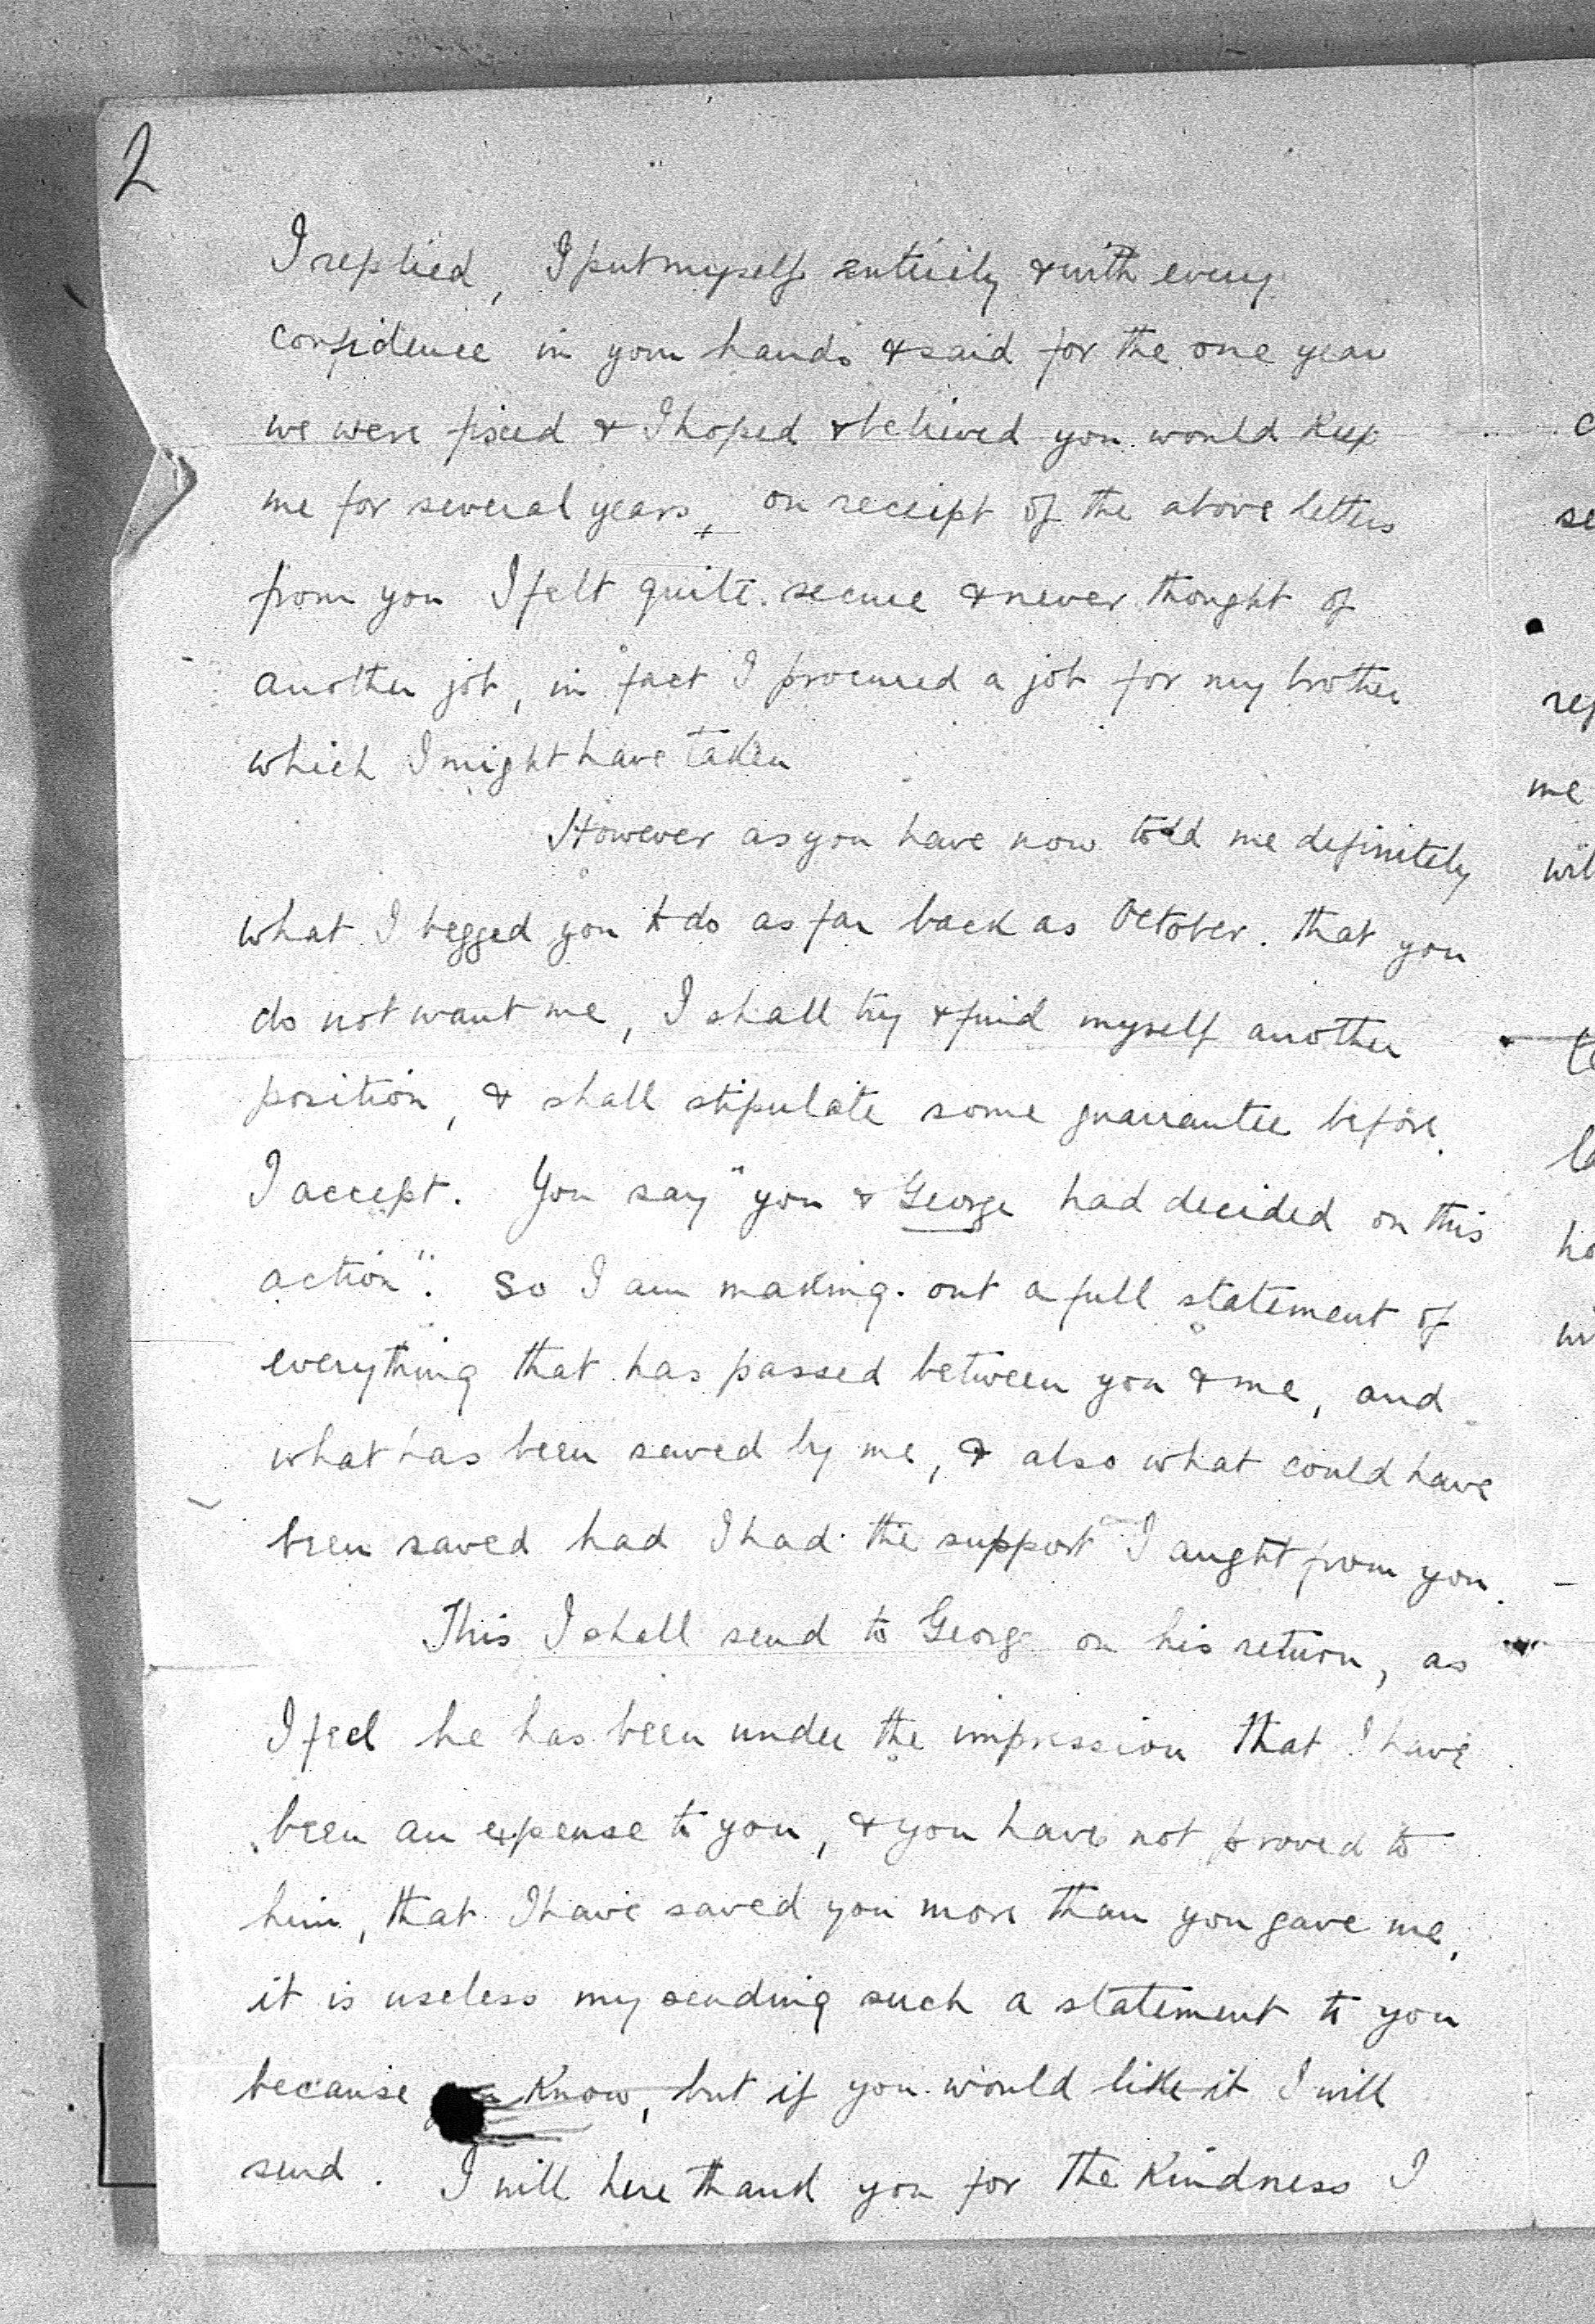 2
I replied, I put myself entirily & with every
confidence in your hands & said for the one year
we were fixed & I hoped & believed you would keep
me for several years, on receipt of the above letters
from you I felt quite secure & never thought of
another job, in fact I procured a job for my brother
which I might have taken
However as you have now told me definitely
what I begged you to do as far back as October. that you
do not want me, I shall try & find myself another
position, & shall stipulate some guarrantee before
I accept. You say "you & George had decided on this
action". So I am making out a full statement of
everything that has passed between you & me, and
what has been saved by me, & also what could have
been saved had I had the support I aught from you.
This I shall send to George on his return, as
I feel he has been under the impression that I have
been an expense to you, & you have not proved to
him, that I have saved you more than you gave me,
it is useless my sending such a statement to you
because know, but if you would like it I will
send. I will here thank you for the kindness I
c
se
rep
me
wil
te
la
ho